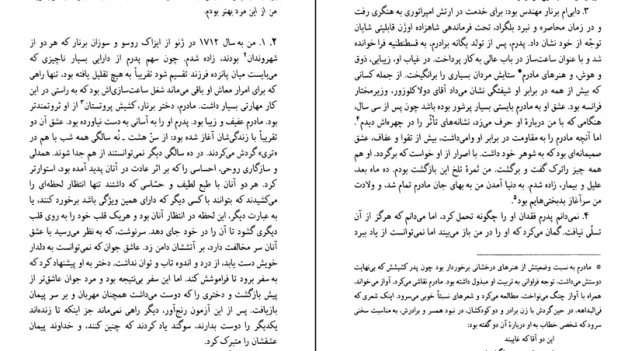 من از این مرد بهتر بودم.
۲. ۱. من به سال ۱۷۱۲ در ژنو از ایزاک روسو و سوزان برنار که هر دو از
شهروندان² بودند، زاده شدم. چون سهم پدرم از دارایی بسیار ناچیزی که
می‌بایست میان پانزده فرزند تقسیم شود تقریباً به هیچ تقلیل یافته بود، تنها راهی
که برای امرار معاش او باقی می‌ماند شغل ساعت‌سازی‌اش بود که به راستی در این
کار مهارتی بسیار داشت. مادرم، دختر برنار، کشیش پروتستان³ از او ثروتمندتر
بود. مادرم عفیف و زیبا بود. پدرم او را به آسانی به دست نیاورده بود. عشق آن دو
تقریباً با زندگی‌شان آغاز شده بود: از سنّ هشت ـ نُه سالگی همه شب با هم در
«تری» گردش می‌کردند. در ده سالگی دیگر نمی‌توانستند از هم جدا شوند. همدلی
و سازگاری روحی، احساسی را که بر اثر عادت در آنان پدید آمده بود، استوارتر
کرد. هر دو آنان با طبع لطیف و حسّاسی که داشتند تنها انتظار لحظه‌ای را
می‌کشیدند که بتوانند با کسی دیگر که دارای همین ویژگی باشد برخورد کنند، یا
به عبارت دیگر، این لحظه در انتظار آنان بود و هریک قلب خود را به روی قلب
دیگری گشود تا آن را در خود جای دهد. سرنوشت، که به نظر می‌رسید با عشق
آنان سر مخالفت دارد، بر آتششان دامن زد. عاشق جوان که نمی‌توانست به دلدار
خویش دست یابد، از درد و اندوه تاب و توان نداشت. دختر به او پیشنهاد کرد که
به سفر برود تا فراموشش کند. اما این سفر بی‌نتیجه بود و مرد جوان عاشق‌تر از
پیش بازگشت و دختری را که دوست می‌داشت همچنان مهربان و بر سر پیمان
بازیافت. پس از این آزمون رنج‌آور، دیگر راهی نمی‌ماند جز اینکه تا زنده‌اند
یکدیگر را دوست بدارند، سوگند یاد کردند که چنین کنند، و خداوند پیمان
عشقشان را متبرک کرد.
۳. دایی‌ام برنار مهندس بود: برای خدمت در ارتش امپراتوری به هنگری رفت
و در زمان محاصره و نبرد بلگراد، تحت فرماندهی شاهزاده اوژن قابلیتی شایان
توجّه از خود نشان داد. پدرم، پس از تولد یگانه برادرم، به قسطنطنیه فراخوانده
شد و با عنوان ساعت‌ساز در باب عالی به کار پرداخت. در غیاب او، زیبایی، ذوق
و هوش، و هنرهای مادرم* ستایش مردان بسیاری را برانگیخت. از جمله کسانی
که بیش از همه در برابر او شیفتگی نشان می‌داد آقای دولاکلوزور، وزیرمختار
فرانسه بود. عشق او به مادرم بایستی بسیار پرشور بوده باشد چون پس از سی سال،
هنگامی که با من دربارهٔ او حرف می‌زد، نشانه‌های تأثّر را در چهره‌اش دیدم⁴.
اما آنچه مادرم را به مقاومت در برابر او وامی‌داشت، بیش از تقوا و عفاف، عشق
صمیمانه‌ای بود که به شوهر خود داشت. با اصرار از او خواست که برگردد. او هم
همه چیز را ترک گفت و برگشت. من ثمرهٔ تلخ این بازگشت بودم. ده ماه بعد،
علیل و بیمار، زاده شدم. به دنیا آمدن من به بهای جان مادرم تمام شد، و ولادت
من سرآغاز بدبختی‌هایم بود⁵.
۴. نمی‌دانم پدرم فقدان او را چگونه تحمل کرد. اما می‌دانم که هرگز از آن
تسلّی نیافت. گمان می‌کرد که او را در من باز می‌بیند اما نمی‌توانست از یاد ببرد
* مادرم به نسبت وضعیتش از هنرهای درخشانی برخوردار بود چون پدر کشیشش که بی‌نهایت
دوستش می‌داشت، توجه فراوانی به تربیت او مبذول داشته بود. مادرم نقاشی می‌کرد، آواز می‌خواند،
همراه با آواز چنگ می‌نواخت، مطالعه می‌کرد و شعرهای نسبتاً خوبی می‌سرود. اینک شعری که
فی‌البداهه، در حین گردش با زن برادر و دو کودکشان، در نبود همسر و برادرش، به مناسبت سخنی
سرود که شخصی خطاب به او دربارهٔ آن دو گفته بود:
این دو آقا که غایبند